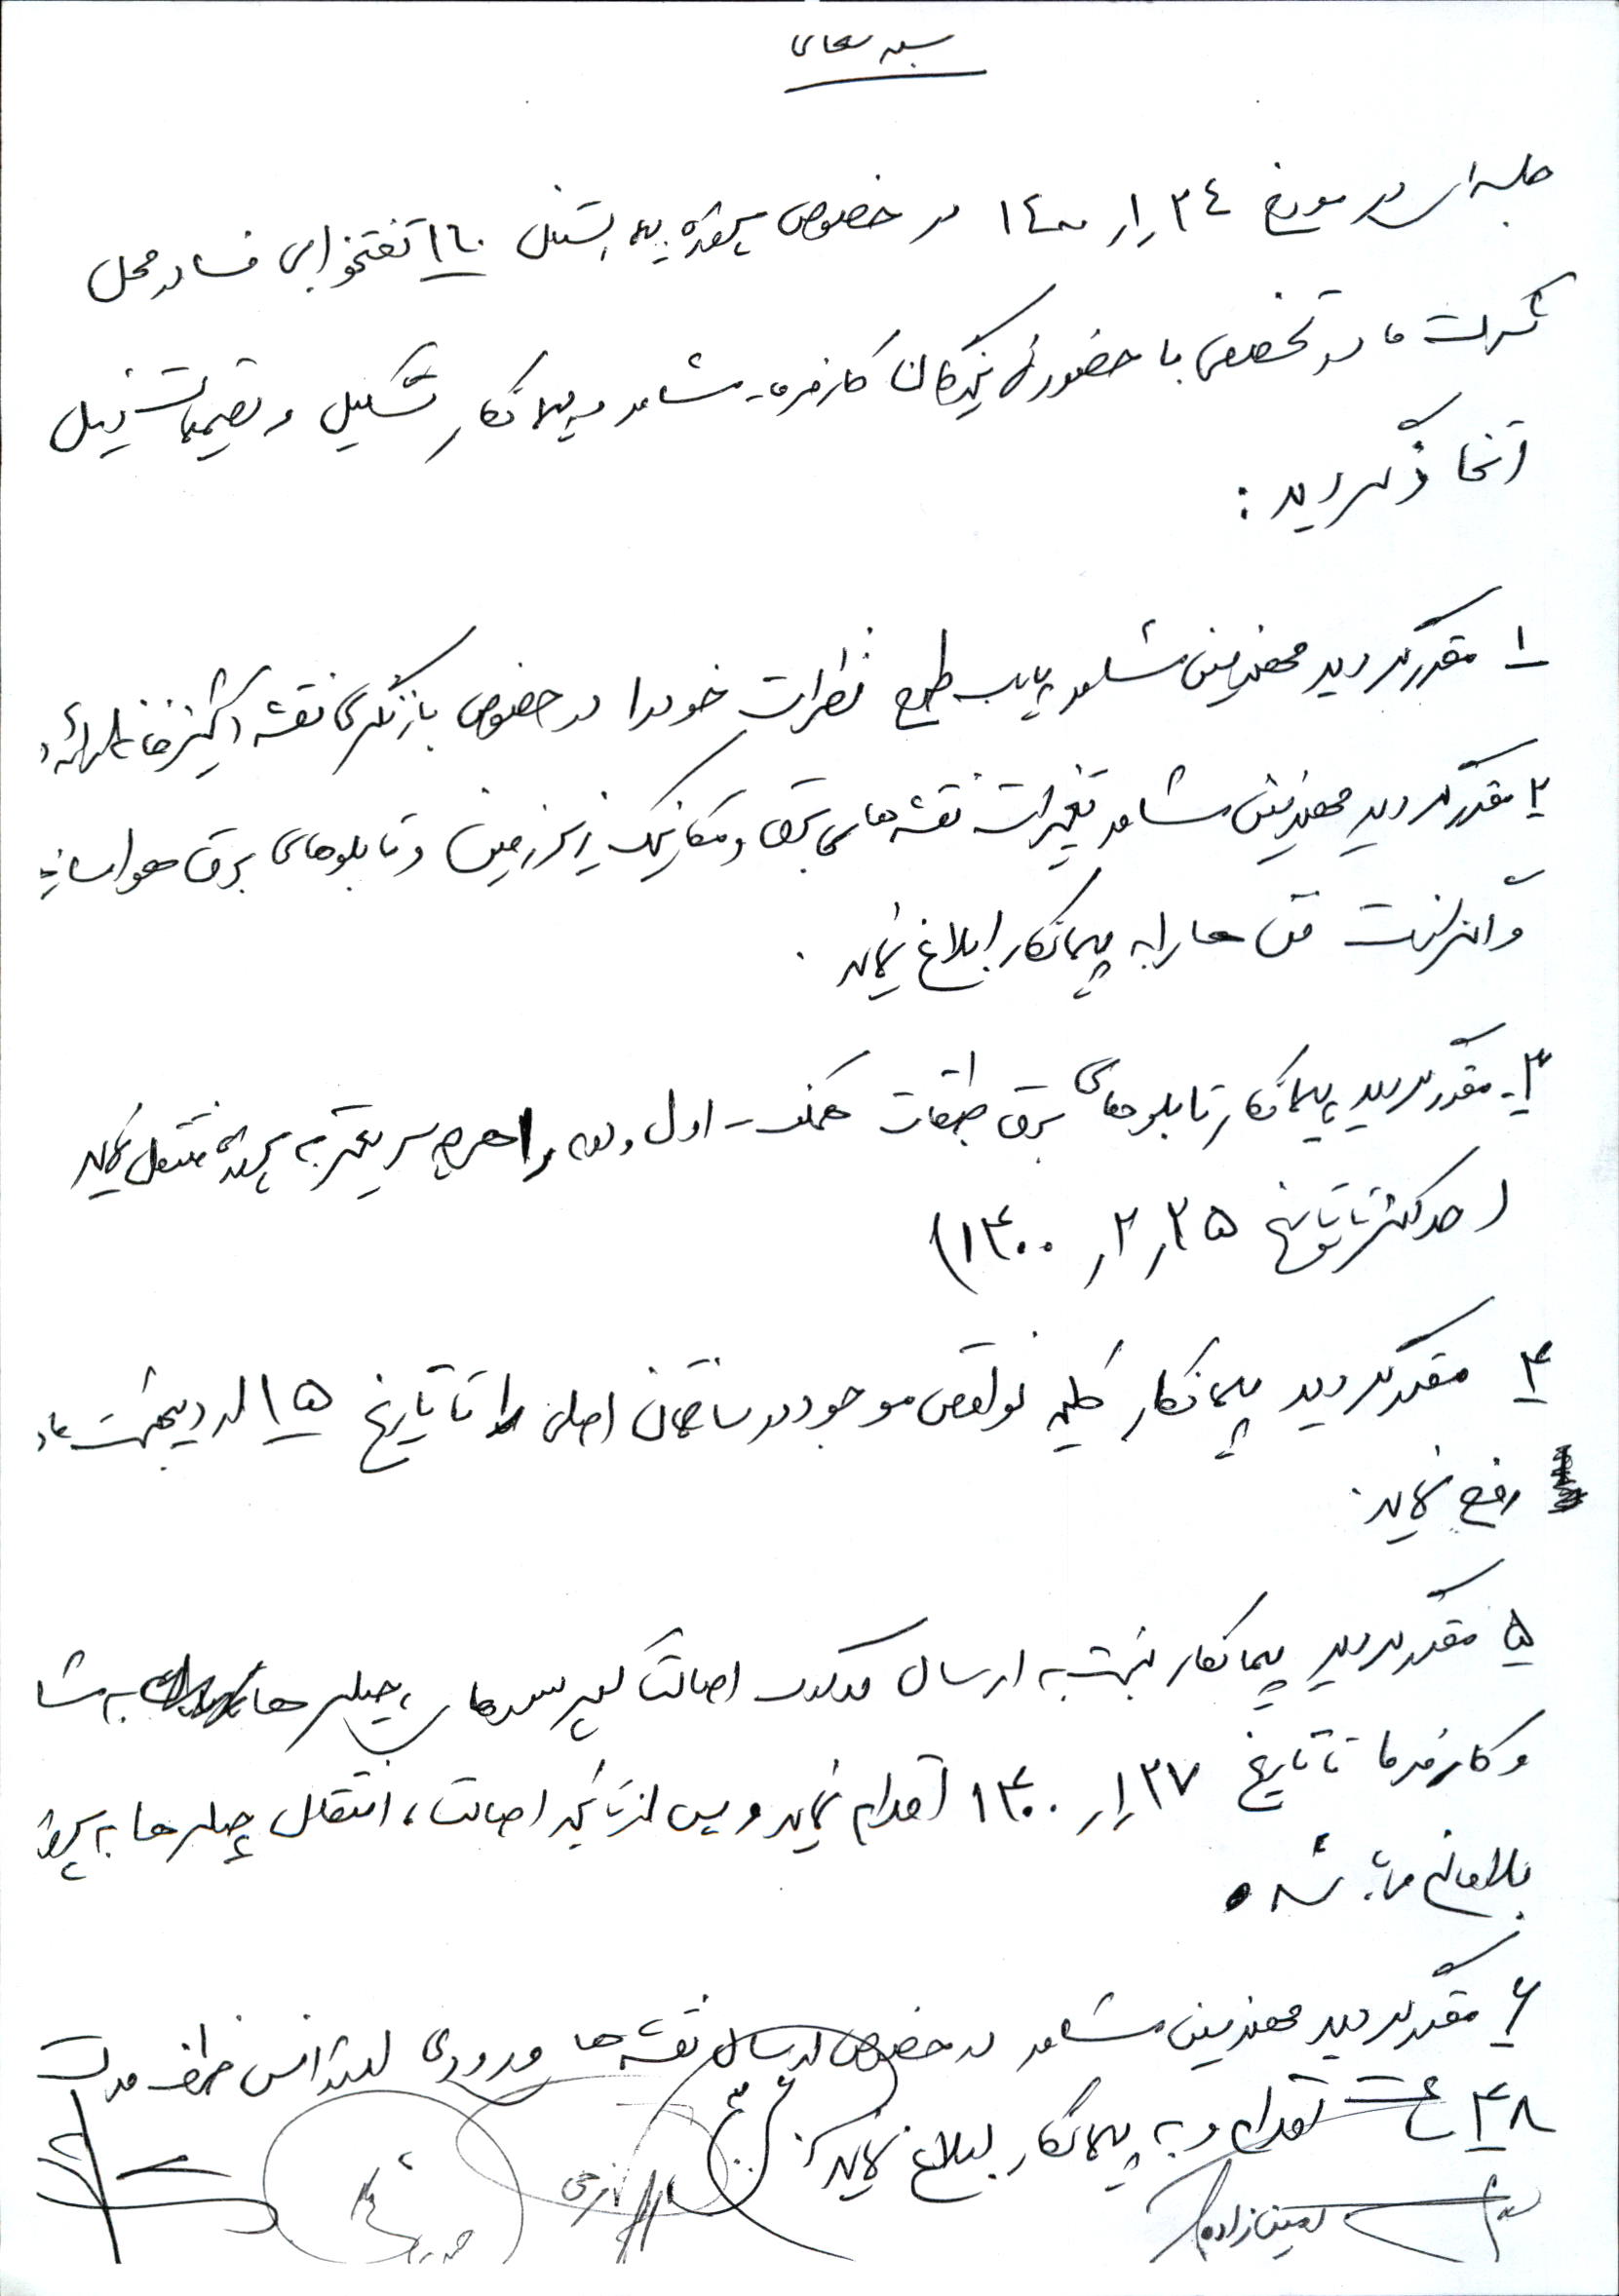 بسمه تعالی
جلسه ای در مورخ ۲۴ر۱ر۱۴۰۰ در خصوص پروژه بیمارستان ۱۶۰ تختخوابی فسا در محل
شرکت مادر تخصصی با حضور نمایندگان کارفرما، مشاور و پیمانکار تشکیل و تصمیمات ذیل
اتخاذ گردید :
۱ مقرر گردید مهندسین مشاور پارس طرح نظرات خود را در خصوص بازنگری نقشه آشپزخانه ارائه
۲ مقرر گردید مهندسین مشاور تغییرات نقشه های برق و مکانیک زیرزمین و تابلوهای برق هواساز
و اگزاست فن ها را به پیمانکار ابلاغ نماید .
۳- مقرر گردید پیمانکار تابلوهای برق طبقات همکف - اول و دوم را هرچه سریعتر به پروژه منتقل نماید
(حداکثر تا تاریخ ۲۵ر۲ر۱۴۰۰)
۴ مقرر گردید پیمانکار کلیه نواقص موجود در ساختمان اصلی را تا تاریخ ۱۵ اردیبهشت ماه
رفع نماید .
۵ مقرر گردید پیمانکار نسبت به ارسال مدارک اصالت کمپرسورهای چیلرها به مشا
و کارفرما تا تاریخ ۲۷ر۱ر۱۴۰۰ اقدام نماید و پس از تایید اصالت، انتقال چیلرها به پروژه
بلامانع می باشد .
۶ مقرر گردید مهندسین مشاور در خصوص ارسال نقشه ها ورودی اورژانس ظرف مدت
۴۸ ساعت اقدام و به پیمانکار ابلاغ نماید .
امین زاده